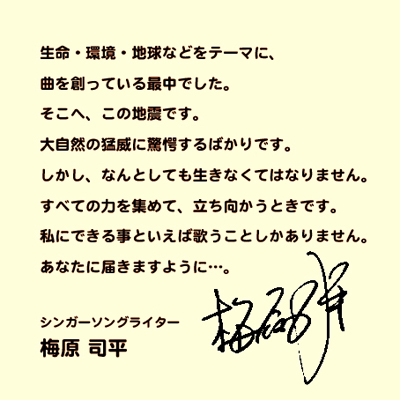 生命・環境・地球などをテーマに、
曲を創っている最中でした。
そこへ、この地震です。
大自然の猛威に驚愕するばかりです。
しかし、なんとしても生きなくてはなりません。
すべての力を集めて、立ち向かうときです。
私にできる事といえば歌うことしかありません。
あなたに届きますように…。
シンガーソングライター
梅原 司平